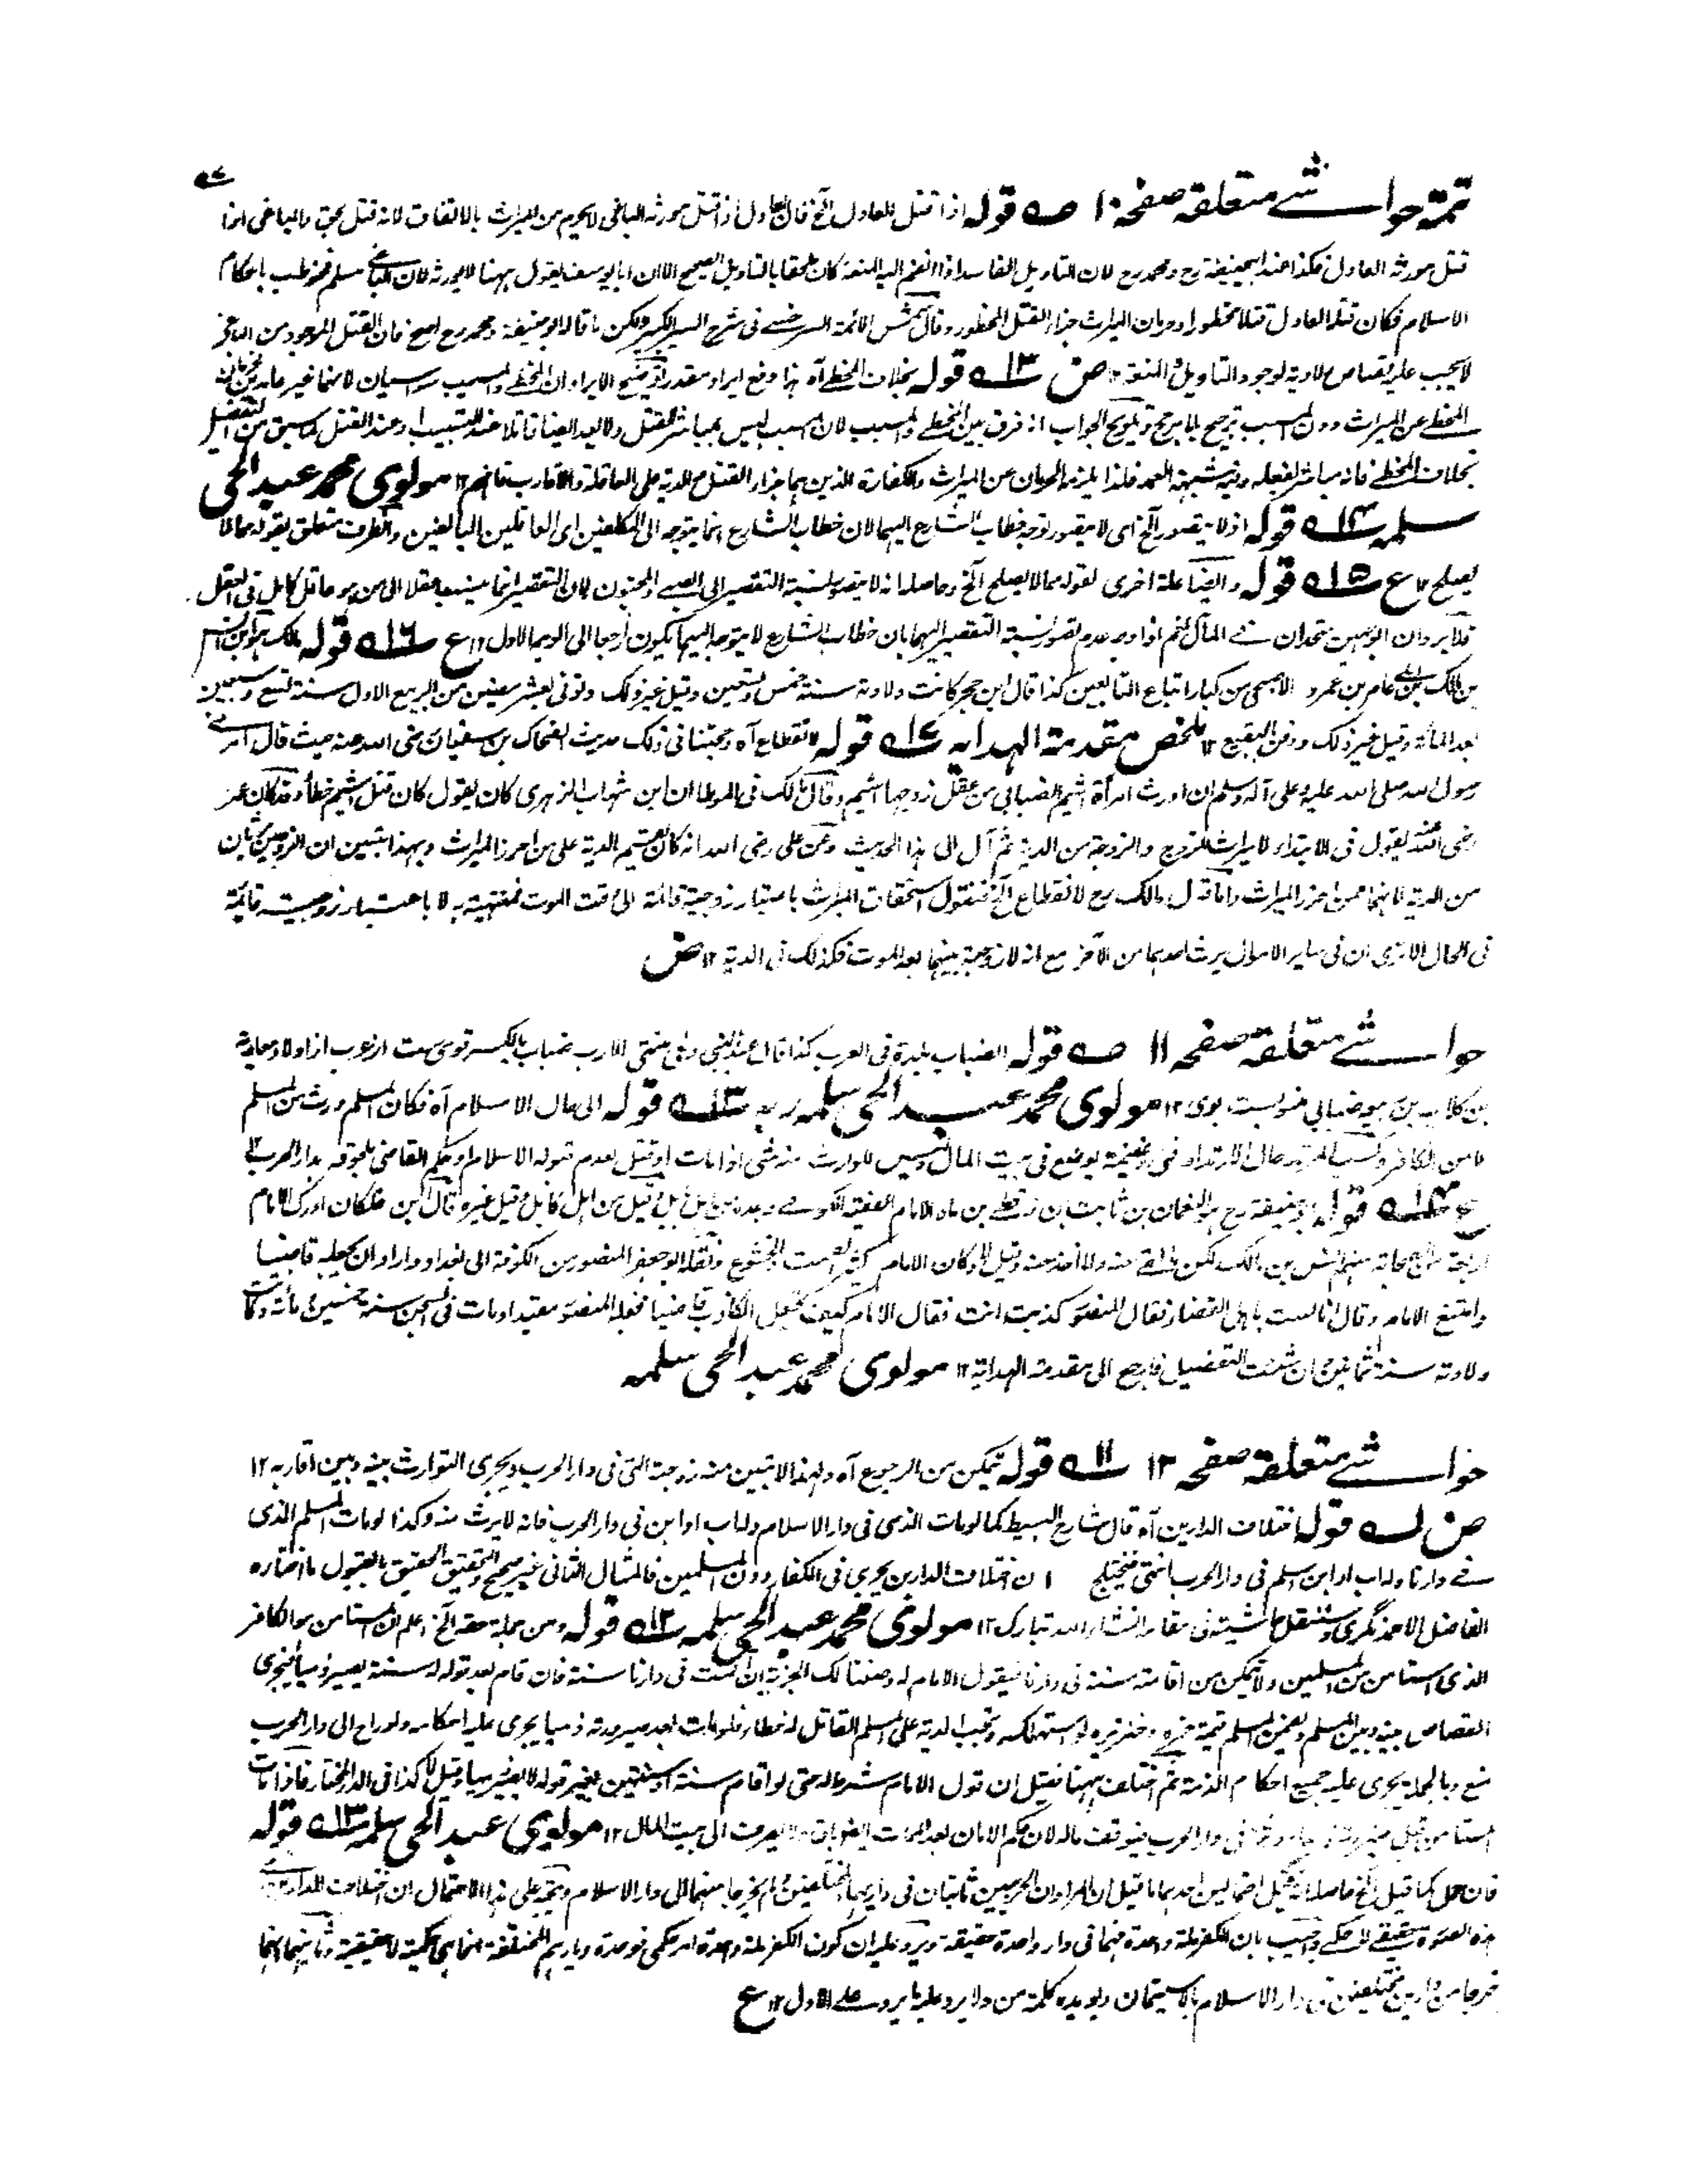 تتمة حواشے متعلقة صفحه ۱۰ قوله اذا قتل العادل آلخ فان العادل اذا قتل مورثه الباغى لايحرم من الميراث بالاتفاق لانه قتل بحق والباغى اذا
قتل مورثه العادل فكذا عند ابيحنيفة رح ومحمد رح لان التاويل الفاسد اذا انضم اليه المنعة كان ملحقا بالتاويل الصحيح الا ان ابا يوسف يقول ههنا لايورثه لان الباغى مسلم فخوطب باحكام
الاسلام فكان قتله العادل قتلا محظورا وحرمان الميراث جزاء القتل المحظور وقال شمس الائمة السرخسے فى شرح السير الكبير ولكن ما قاله ابوحنيفة ومحمد رح اصح فان القتل الموجود من الباغے
لايجب عليه قصاص ولادية لوجود التاويل والمنعة ۱۲ ض ۱۳ قوله بخلاف المخطے آه هذا دفع ايراد مقدر توضيح الايراد ان المخطے والمسبب سيان لانهما غير عامدين
المخطے عن الميراث دون المسبب ترجيح بلا مرجح وتوضيح الجواب انه فرق بين المخطے والمسبب لان المسبب ليس بمباشر القتل ولا يعد ايضا قاتلا عند التسبيب وعند القتل كما سبق من التفصيل
بخلاف المخطے فانه مباشر لفعله وفيه شبهة العمد فلذا يلزمه الحرمان عن الميراث والكفارة الذين هما جزاء القتل مع الدية على العاقلة والاقارب فافهم ۱۲ مولوى محمد عبد الحى
سلمه ۱۴ قوله اذ لا يتصور آلخ اى لا يتصور توجه خطاب الشارع اليهما لان خطاب الشارع انما يتوجه الى المكلفين اى العاقلين البالغين والظرف متعلق بقوله مما لا
يصلح ۱۲ ع ۱۵ قوله وايضا علة اخرى لقوله مما لايصلح آلخ وحاصله انه لايتصور نسبة التقصير الى الصبے والمجنون لان التقصير انما ينسب عقلا الى من هو عاقل كامل فى العقل
فلا يرد ان الوجهين متحدان فے المآل نعم اذا وجه عدم تصور نسبة التقصير اليهما بان خطاب الشارع لا يتوجه اليهما يكون راجعا الى الوجه الاول ۱۲ ع ۱۶ قوله مالك هو ابن انس
بن مالك بن ابى عامر بن عمرو الاصبحى من كبار اتباع التابعين كذا قال ابن حجر كانت ولادته سنة خمس وتسعين وقيل غير ذلك وتوفى لعشر مضين من الربيع الاول سنة تسع وسبعين
بعد المائة وقيل غير ذلك ودفن البقيع ۱۲ ملخص مقدمة الهدايه ۱۷ قوله لانقطاع آه وحجتنا فى ذلك حديث الضحاك بن سفيان رضى الله عنه حيث قال امرنے
رسول الله صلى الله عليه وعلى آله وسلم ان اورث امرأة اشيم الضبابى من عقل زوجها اشيم وقال مالك فى الموطا ان ابن شهاب الزهرى كان يقول كان قتل اشيم خطأ وقد كان عمر
رضى الله عنه يقول فى الابتداء لا ميراث للزوج والزوجة من الدية ثم آل الى هذا الحديث وعن على رضى الله انه كان يقسم الدية على من احرز الميراث وبهذا تبين ان الزوجين يرثان
من الدية لانهما ممن احرز الميراث واما قول مالك رح لانقطاع آلخ فنقول استحقاق الميراث باعتبار زوجية قائمة الى وقت الموت فمنتهية به لا باعتبار زوجية قائمة
فى الحال الا ترى ان فى ساير الاموال يرث احدهما من الآخر مع انه لا زوجية بينهما بعد الموت فكذلك فى الدية ۱۲ ض
حواشے متعلقة صفحه ۱۱ قوله الضباب بلدة فى العرب كذا قال عبد النبى وفى منتهى الارب ضباب بالكسر قومى ست از عرب از اولاد معاوية
بن كلاب بن ضبابى منسوبست بوى ۱۲ مولوى محمد عبد الحى سلمه ربه ۱۳ قوله الى حال الاسلام آه فكان المسلم ورث من المسلم
لا من الكافر وكسب المرتد حال الارتداد فى غنيمة يوضع فى بيت المال وليس للوارث منه شى اذا مات او قتل لعدم قبوله الاسلام او حكم القاضى بلحوقه بدار الحرب ۱۲
ع ۱۴ قوله ابوحنيفة رح هو النعمان بن ثابت بن زوطے بن ماه الامام الفقيه الكوفے وجده من اهل كابل وقيل غيره وقال ابن خلكان ادرك الامام
اربعة من الصحابة منهم انس بن مالك لكن لم يلق منه ولا اخذ عنه وكان الامام كثير الصمت والخشوع ونقله ابو جعفر المنصور من الكوفة الى بغداد واراد ان يجعله قاضيا
وامتنع الامام وقال انا لست باهل القضاء فقال المنصور كذبت انت فقال الامام كيف تجعل الكاذب قاضيا فجعله المنصور مقيدا ومات فى السجن سنة خمسين ومائة وكانت
ولادته سنة ثمانين ان شئت التفصيل فارجع الى مقدمة الهداية ۱۲ مولوى محمد عبد الحى سلمه
حواشے متعلقة صفحه ۱۲ ۱۱ قوله تمكن من الرجوع آه ولهذا لاتبين منه زوجته التى فى دار الحرب ويجرى التوارث بينه وبين اقاربه ۱۲
ض قوله اختلاف الدارين آه قال شارح البسيط كما لو مات الذمى فى دار الاسلام وله اب او ابن فى دار الحرب فانه لايرث منه وكذا لو مات المسلم الذى
فے دارنا وله اب او ابن مسلم فى دار الحرب انتهى فيختلج ان اختلاف الدارين يجرى فى الكفار دون المسلمين فالمثال الثانى غير صحيح والتحقيق الحقيق بالقبول ما اختاره
الفاضل الاحمد نگرى وسننقل حاشيته فى مقار انشاء الله تبارك ۱۲ مولوى محمد عبد الحى سلمه ۱۲ قوله ومن جملة حقه آلخ اعلم ان المستامن هو الكافر
الذى استامن من المسلمين ولا تمكن من اقامته سنة فى دارنا فيقول الامام له وضعنا لك الجزية ان اقمت فى دارنا سنة فان قام بعد قوله له سنة يصير ذميا فيجرى
القصاص بينه وبين المسلم ويضمن المسلم قيمة خمره وخنزيره لو استهلكه وتجب الدية على المسلم القاتل له خطاء فلو مات بعد صيرورته ذميا يجرى عليه احكامه ولو راح الى دار الحرب
منع وبالجملة يجرى عليه جميع احكام الذمة ثم اختلف ههنا فقيل ان قول الامام شرط له حتى لو اقام سنة او سنتين بغير قوله لايصير ذميا وقيل لا كذا فى الدر المختار فاذا مات
المستامن قبل فى دار الحرب فيوقف ماله لان حكم الامان بعد يصرف الى بيت المال ۱۲ مولوى عبد الحى سلمه ۱۳ قوله
فان حمل كما قيل آلخ حاصله انه يحتمل احتمالين احدهما ما قيل ان المراد ان الحربيين ثابتان فى داريهما المختلفين ولم يخرجا منهما الى دار الاسلام ويتجه على هذا الاحتمال ان اختلاف الدارين
هذه الصورة حقيقے لا حكمے واجيب بان الكفر ملة واحدة فهما فى دار واحدة حقيقة ويرد عليه ان كون الكفر ملة واحدة امر حكمى فوحدة دياريهم المختلفة انما هى حكمية لا حقيقية وثانيهما انهما
خرجا من دارين مختلفين الى دار الاسلام بالاستيمان ويؤيده كلمة من ولا يرد عليه ما يرد على الاول ۱۲ ع